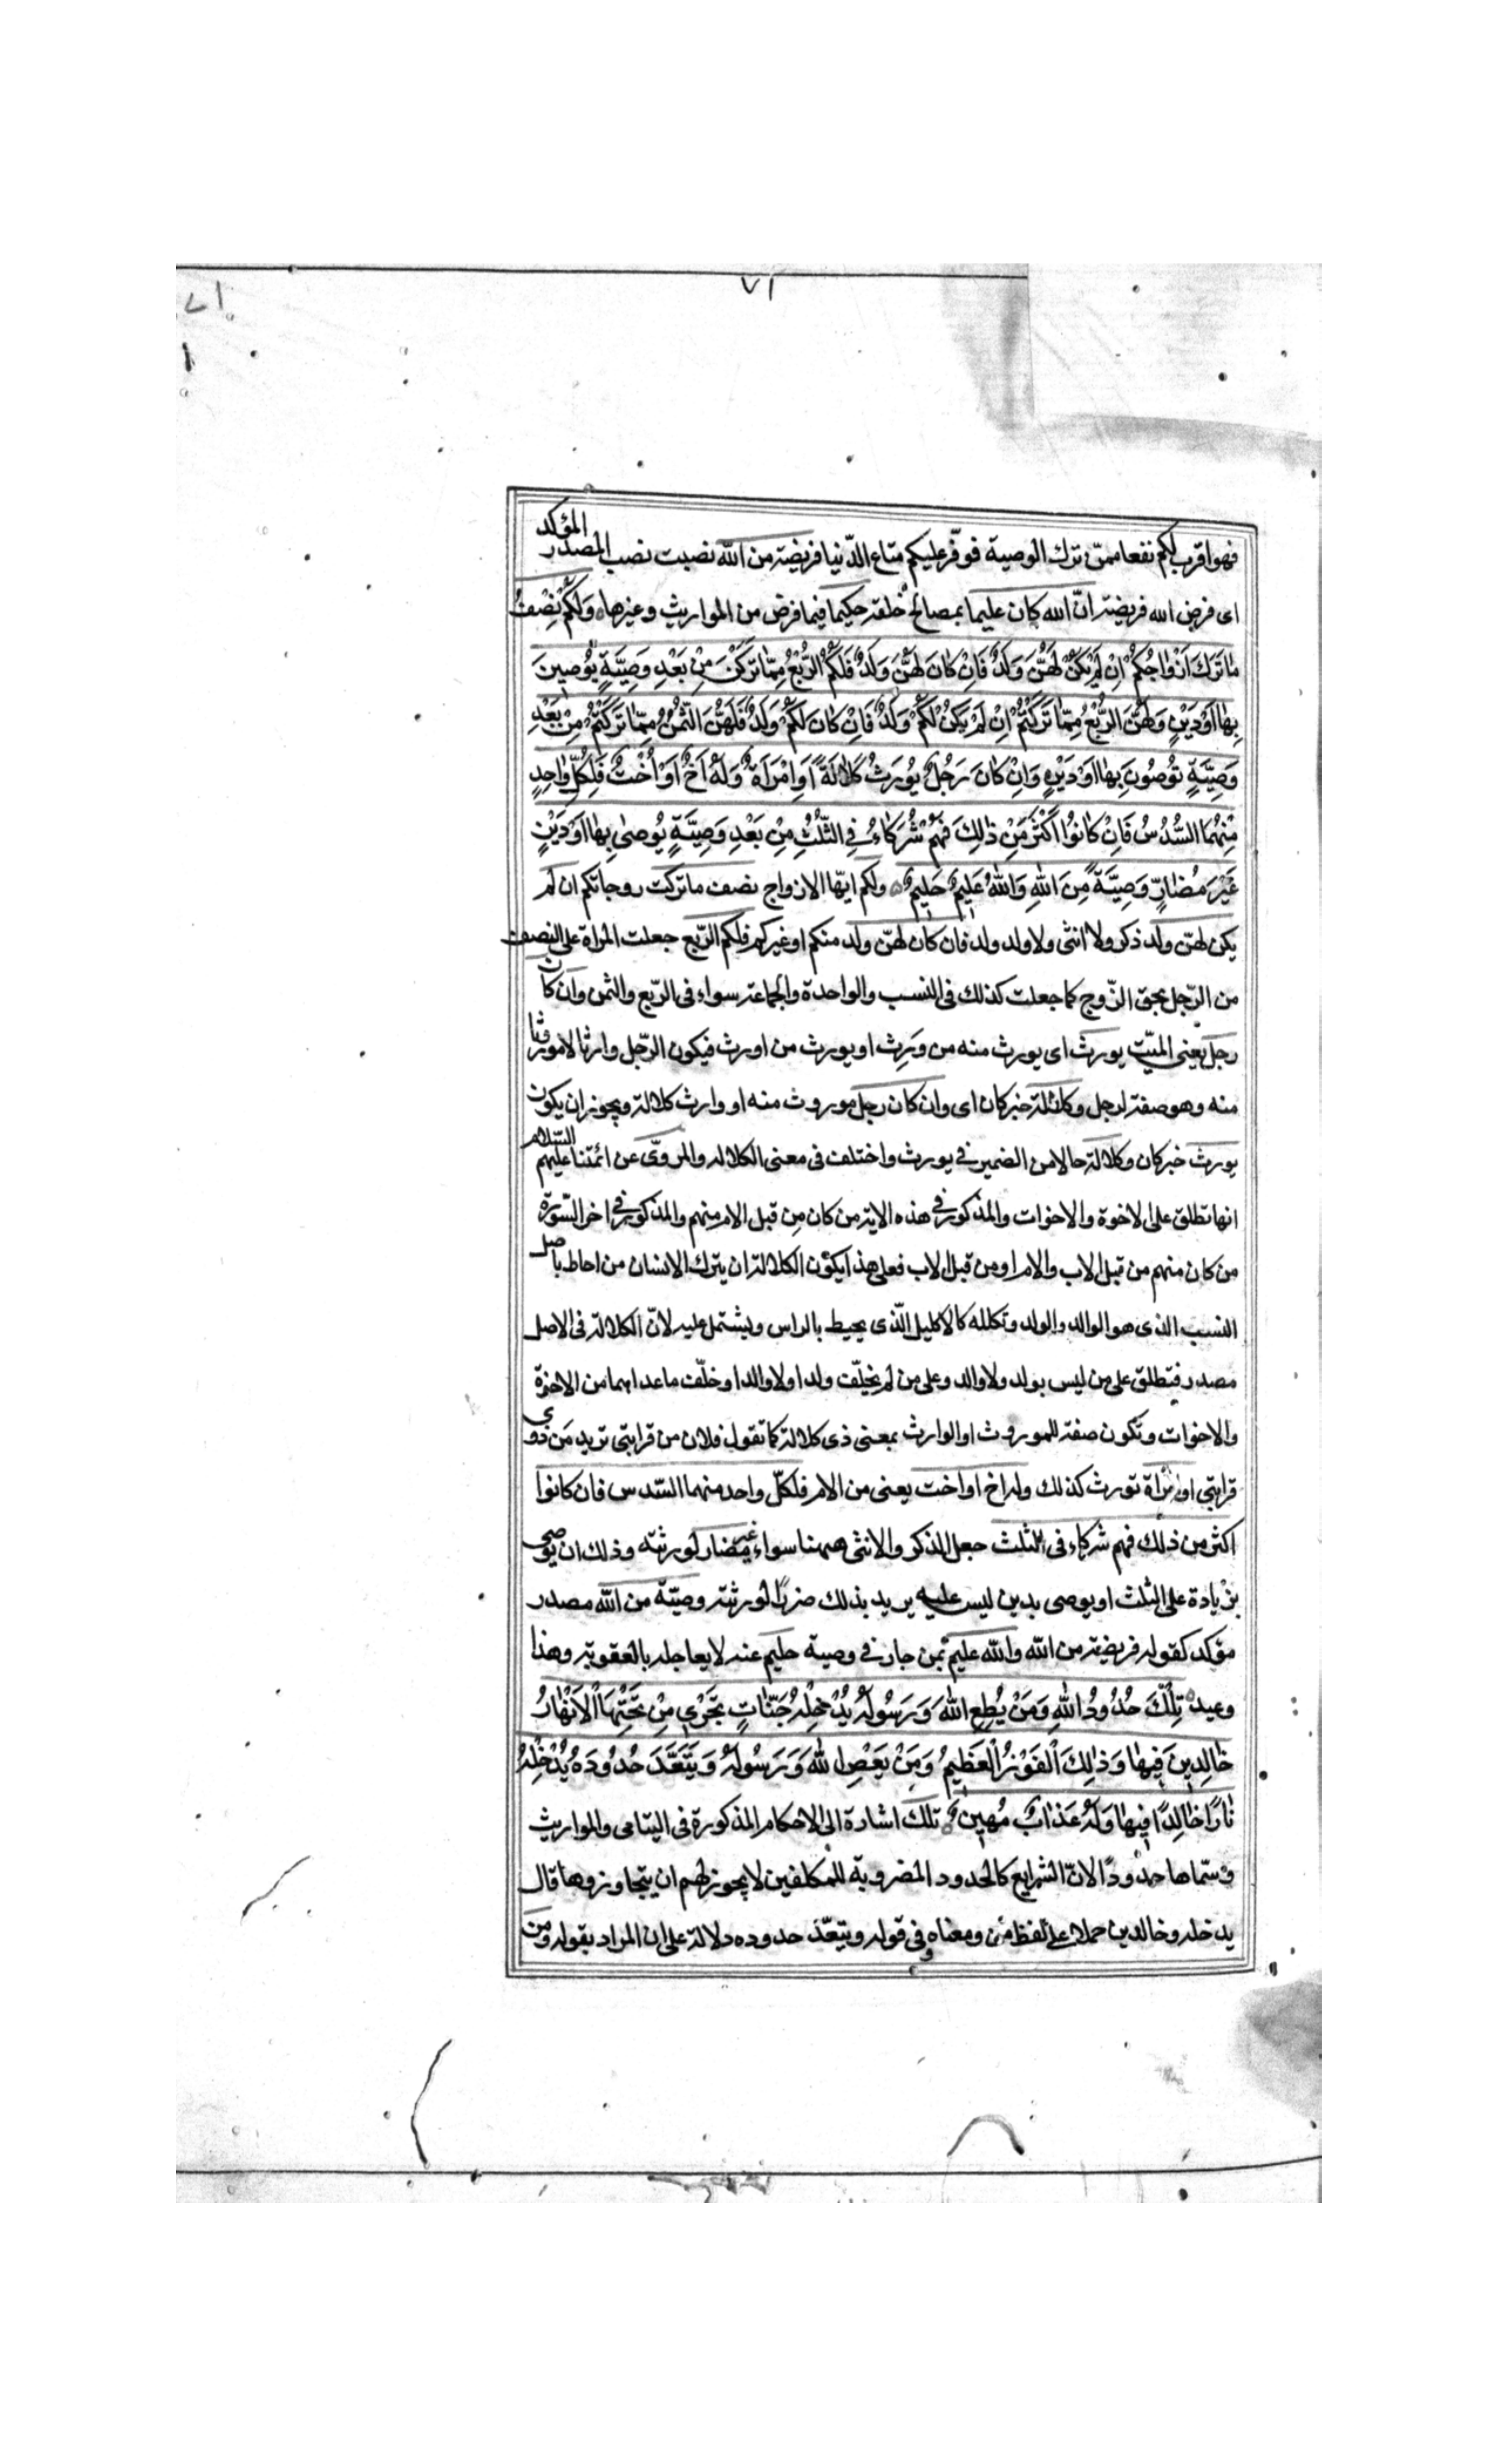 ٧١
٧١
فهو اقرب لكم نفعا ممّن ترك الوصية فوفّر عليكم متاع الدّنيا فريضة من الله نصبت نصب المصدر المؤكد
اى فرض الله فريضة انّ الله كان عليما بمصالح خلقه حكيما فيما فرض من المواريث وغيرها وَلَكُمْ نِصْفُ
مٰا تَرَكَ اَزْوٰاجُكُمْ اِنْ لَمْ يَكُنْ لَهُنَّ وَلَدٌ فَاِنْ كٰانَ لَهُنَّ وَلَدٌ فَلَكُمُ الرُّبُعُ مِمّٰا تَرَكْنَ مِنْ بَعْدِ وَصِيَّةٍ يُوصِينَ
بِهٰا اَوْ دَيْنٍ وَلَهُنَّ الرُّبُعُ مِمّٰا تَرَكْتُمْ اِنْ لَمْ يَكُنْ لَكُمْ وَلَدٌ فَاِنْ كٰانَ لَكُمْ وَلَدٌ فَلَهُنَّ الثُّمُنُ مِمّٰا تَرَكْتُمْ مِنْ بَعْدِ
وَصِيَّةٍ تُوصُونَ بِهٰا اَوْ دَيْنٍ وَاِنْ كٰانَ رَجُلٌ يُورَثُ كَلٰالَةً اَوِ امْرَاَةٌ وَلَهُ اَخٌ اَوْ اُخْتٌ فَلِكُلِّ وٰاحِدٍ
مِنْهُمَا السُّدُسُ فَاِنْ كٰانُوا اَكْثَرَ مِنْ ذٰلِكَ فَهُمْ شُرَكٰاءُ فِي الثُّلُثِ مِنْ بَعْدِ وَصِيَّةٍ يُوصىٰ بِهٰا اَوْ دَيْنٍ
غَيْرَ مُضٰارٍّ وَصِيَّةً مِنَ اللهِ وَاللهُ عَلِيمٌ حَلِيمٌ ولكم ايّها الازواج نصف ما تركت زوجاتكم ان لم
يكن لهنّ ولد ذكر ولا انثى ولا ولد ولد فان كان لهنّ ولد منكم او غيركم فلكم الرّبع جعلت المراة على النصف
من الرّجل بحق الزّوج كما جعلت كذلك فى النسب والواحدة والجماعة سواء فى الرّبع والثمن وان كان
رجل يعنى الميّت يورث اى يورث منه من وَرِث او يورث من اورث فيكون الرّجل وارثا لا موروثا
منه وهو صفة لرجل وكلالة خبر كان اى وان كان رجل موروث منه او وارث كلالة ويجوز ان يكون
يورث خبر كان وكلالة حالا من الضمير في يورث واختلف فى معنى الكلاله والمروىّ عن ائمّتنا عليهم السّلام
انها تطلق على الاخوة والاخوات والمذكور في هذه الاية من كان مِن قبل الام منهم والمذكور في اخر السّورة
من كان منهم من قبل الاب والام او من قبل الاب فعلى هذا يكون الكلالة ان يترك الانسان من احاط باصل
النسب الذى هو الوالد والولد وتكلله كالاكليل الّذى يحيط بالراس ويشتمل عليه لانّ الكلالة فى الاصل
مصدر فيتطلق على من ليس بولد ولا والد وعلى من لم يخلّف ولدا ولا والدا وخلّف ما عداهما من الاخوة
والاخوات وتكون صفة للموروث او الوارث بمعنى ذى كلالة كما تقول فلان من قرابتى تريد مَن ذوى
قرابتى او امراة تورث كذلك وله اخ او اخت يعنى من الام فلكلّ واحد منهما السّدس فان كانوا
اكثر من ذلك فهم شركاء فى الثلث جعل الذكر والانثى ههنا سواء غير مضار لورثته وذلك ان يوصى
بزيادة على الثلث او يوصى بدين ليس عليه يريد بذلك ضررًا لورثته وصيّة من الله مصدر
مؤكد كقوله فريضة من الله والله عليم بمن جار في وصية حليم عنه لا يعاجله بالعقوبة وهذا
وعيد تِلْكَ حُدُودُ اللهِ وَمَنْ يُطِعِ اللهَ وَرَسُولَهُ يُدْخِلْهُ جَنّٰاتٍ تَجْرِي مِنْ تَحْتِهَا الْاَنْهٰارُ
خٰالِدِينَ فِيهٰا وَذٰلِكَ الْفَوْزُ الْعَظِيمُ وَمَنْ يَعْصِ اللهَ وَرَسُولَهُ وَيَتَعَدَّ حُدُودَهُ يُدْخِلْهُ
نٰارًا خٰالِدًا فِيهٰا وَلَهُ عَذٰابٌ مُهِينٌ تلك اشارة الى الاحكام المذكورة فى اليتامى والمواريث
وسمّاها حدودًا لانّ الشرايع كالحدود المضروبة للمكلفين لا يجوز لهم ان يتجاوزوها قال
يدخله وخالدين حملا على لفظ من ومعناه وفى قوله ويتعدّ حدوده دلالة على ان المراد بقوله ومن